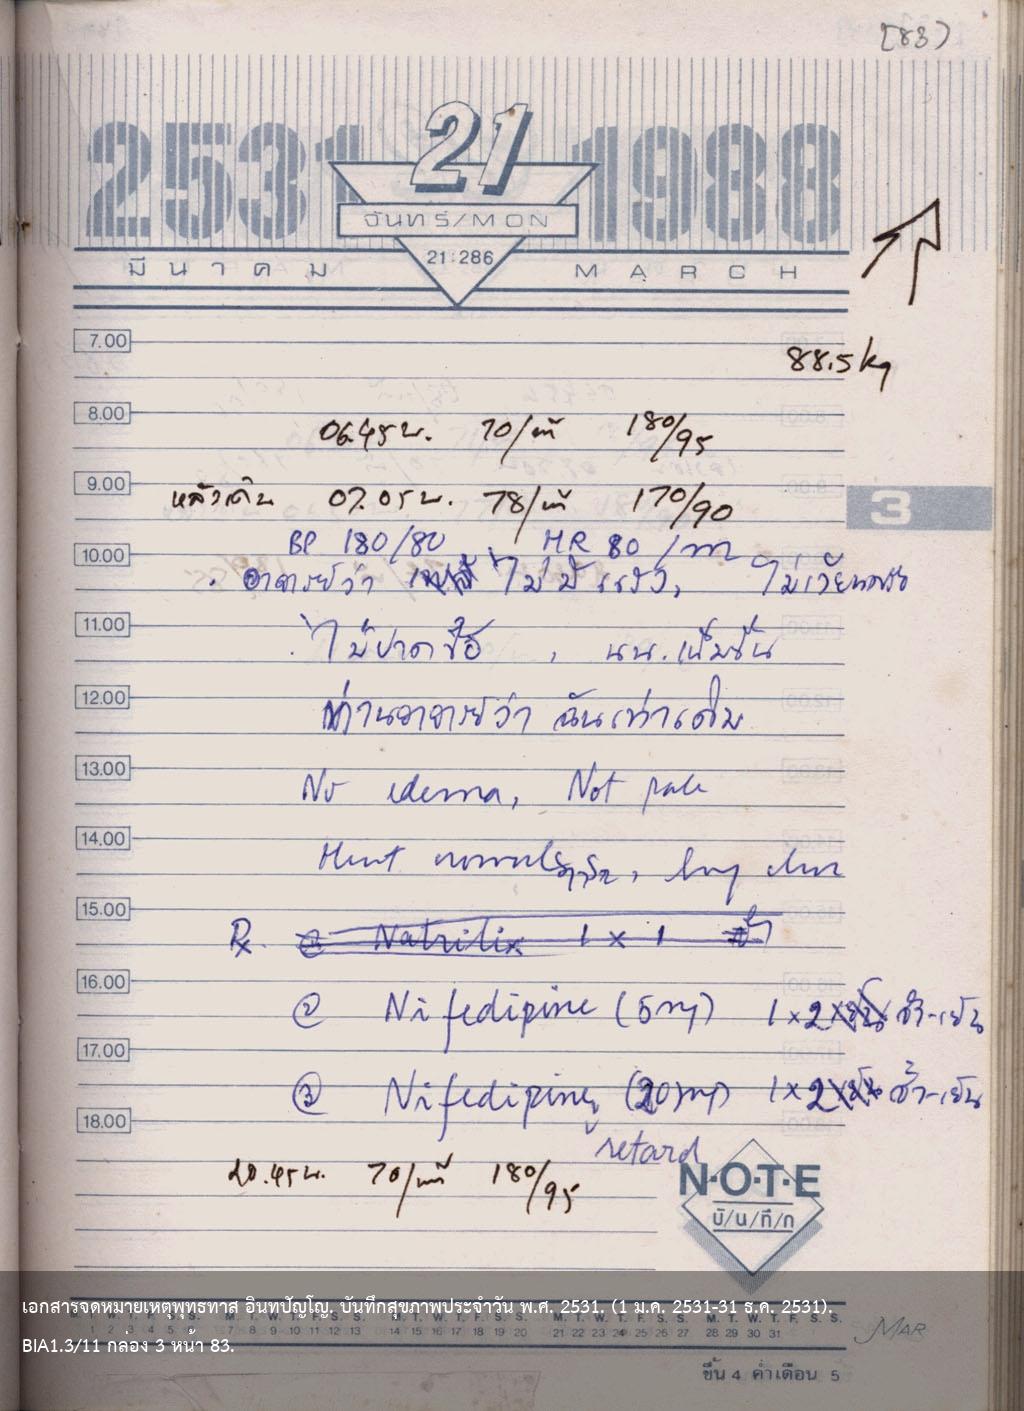 [83]
2531 21 1988
จันทร์/MON
21:286
มีนาคม MARCH
7.00
88.5 kg
8.00
06.45 น. 70/นาที 180/95
9.00
หลังเดิน 07.05 น. 78/นาที 170/90
3
BP 180/80 HR 80 /min
10.00
อาจารย์ว่า ไม่มีแรง, ไม่เวียนหัว
11.00
ไม่ปวดขี้อ , นน. เพิ่มขึ้น
12.00
ท่านอาจารย์ว่า ฉันเท่าเดิม
13.00
No edema, Not pale
14.00
Heart normal, lung clear
15.00
Rx. Natrilix 1 x 1 เช้า
16.00
② Nifedipine (5mg) 1 x 2 เช้า-เย็น
17.00
③ Nifedipine (20mg) 1 x 2 เช้า-เย็น
18.00
retard
20.45 น. 70/นาที 180/95
N·O·T·E
บั/น/ทึ/ก
เอกสารจดหมายเหตุพุทธทาส อินทปัญโญ. บันทึกสุขภาพประจำวัน พ.ศ. 2531. (1 ม.ค. 2531-31 ธ.ค. 2531).
M. T. W. T. F. S. S. M. T. W. T. F. S. S. M. T. W. T. F. S. S. M. T. W. T. F. S. S. M. T. W. T. F. S. S.
1 2 3 4 5 6 7 8 9 10 11 12 13 14 15 16 17 18 19 20 21 22 23 24 25 26 27 28 29 30 31
MAR
BIA1.3/11 กล่อง 3 หน้า 83.
ขึ้น 4 ค่ำเดือน 5